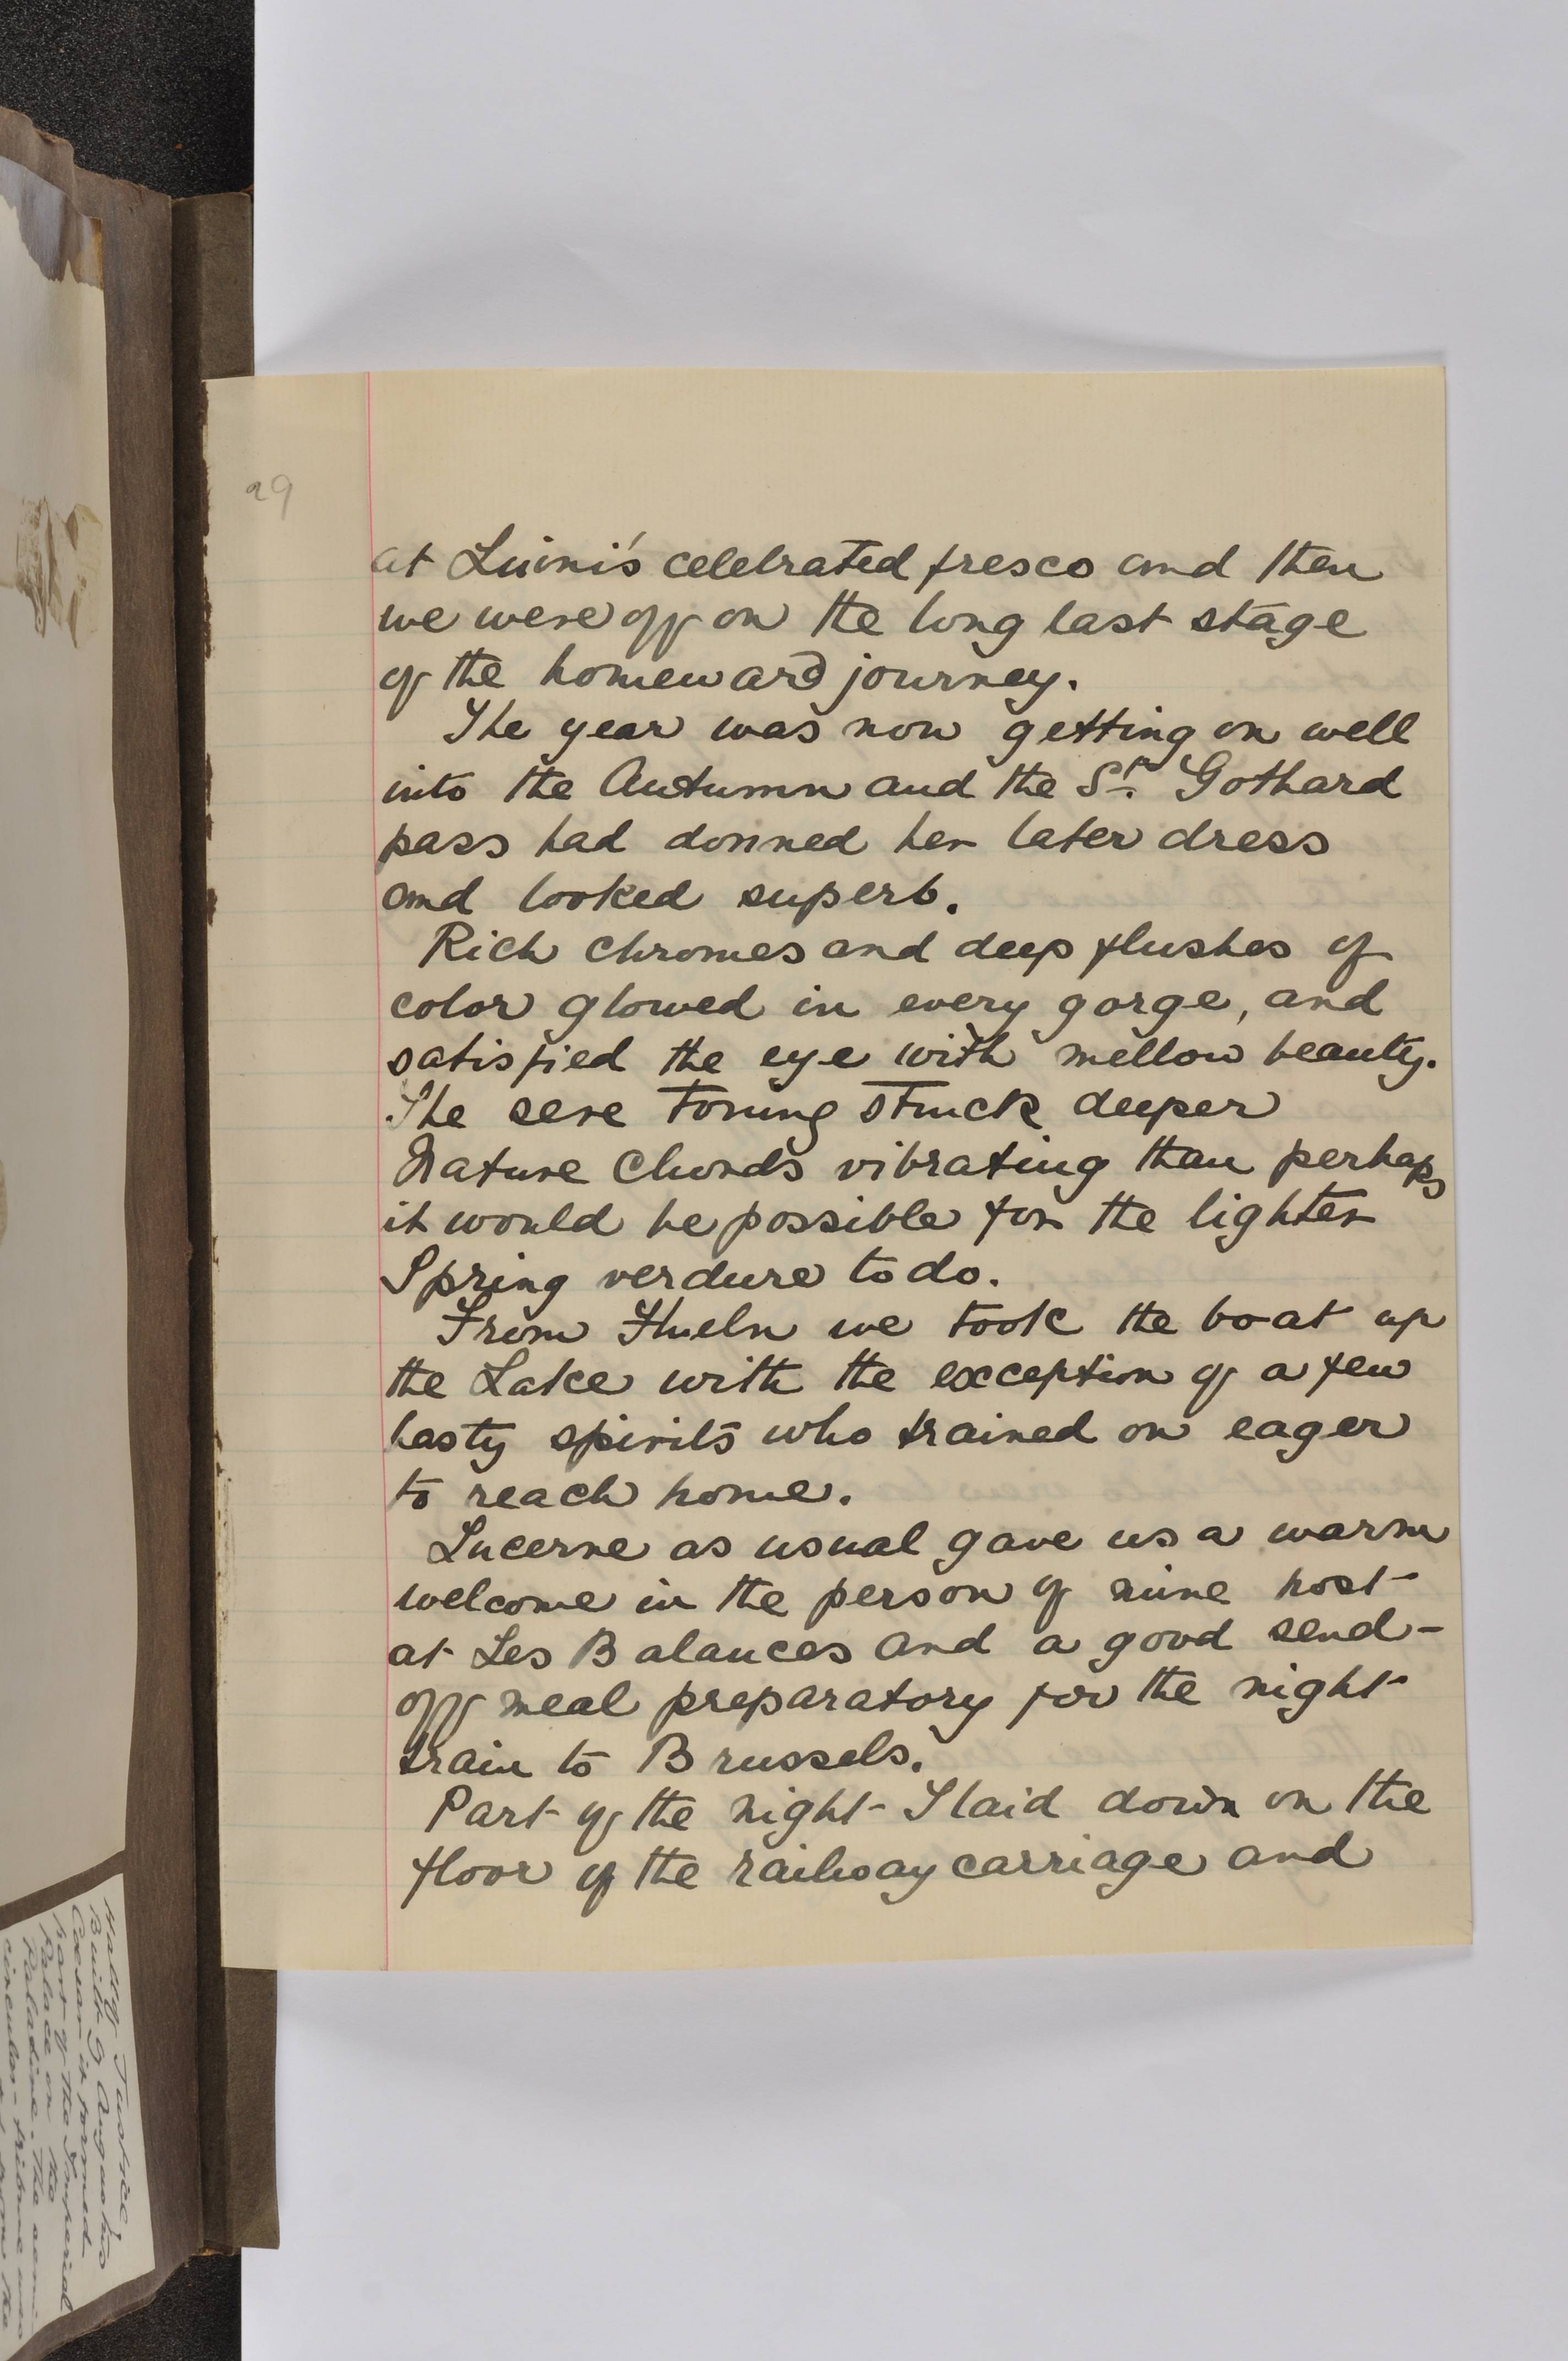 29
at Luini's celebrated fresco and then
we were off on the long last stage
of the homeward journey.
The year was now getting on well
into the Autumn and the St. Gothard
pass had donned her later dress
and looked superb.
Rich chromes and deep flushes of
color glowed in every gorge, and
satisfied the eye with mellow beauty.
The sere toning struck deeper
Nature Chords vibrating than perhaps
it would be possible for the lighter
Spring verdure to do.
From Flueln we took the boat up
the Lake with the exception of a few
hasty spirits who trained on eager
to reach home.
Lucerne as usual gave us a warm
welcome in the person of mine host
at Les Balances and a good send-
off meal preparatory for the night
train to Brussels.
Part of the night I laid down on the
floor of the railway carriage and
Built by Augustus
Caesar it formed
part of the Imperial
Palace on the
Palatine. The semi